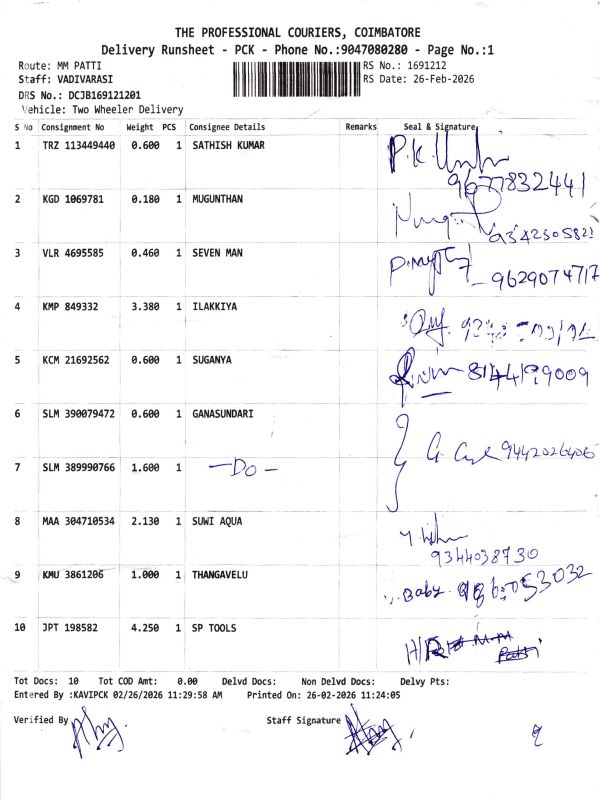 THE PROFESSIONAL COURIERS, COIMBATORE
Delivery Runsheet - PCK - Phone No.:9047080280 - Page No.:1
Route: MM PATTI RS No.: 1691212
Staff: VADIVARASI RS Date: 26-Feb-2026
DRS No.: DCJB169121201
Vehicle: Two Wheeler Delivery
S No Consignment No Weight PCS Consignee Details Remarks Seal & Signature
1 TRZ 113449440 0.600 1 SATHISH KUMAR P.K.
9677832441
2 KGD 1069781 0.180 1 MUGUNTHAN
9342305822
3 VLR 4695585 0.460 1 SEVEN MAN
9629074717
4 KMP 849332 3.380 1 ILAKKIYA
5 KCM 21692562 0.600 1 SUGANYA
6 SLM 390079472 0.600 1 GANASUNDARI
9442026406
7 SLM 389990766 1.600 1 -Do-
8 MAA 304710534 2.130 1 SUWI AQUA
9344038730
9 KMU 3861206 1.000 1 THANGAVELU Baby
10 JPT 198582 4.250 1 SP TOOLS
Tot Docs: 10 Tot COD Amt: 0.00 Delvd Docs: Non Delvd Docs: Delvy Pts:
Entered By :KAVIPCK 02/26/2026 11:29:58 AM Printed On: 26-02-2026 11:24:05
Verified By Staff Signature